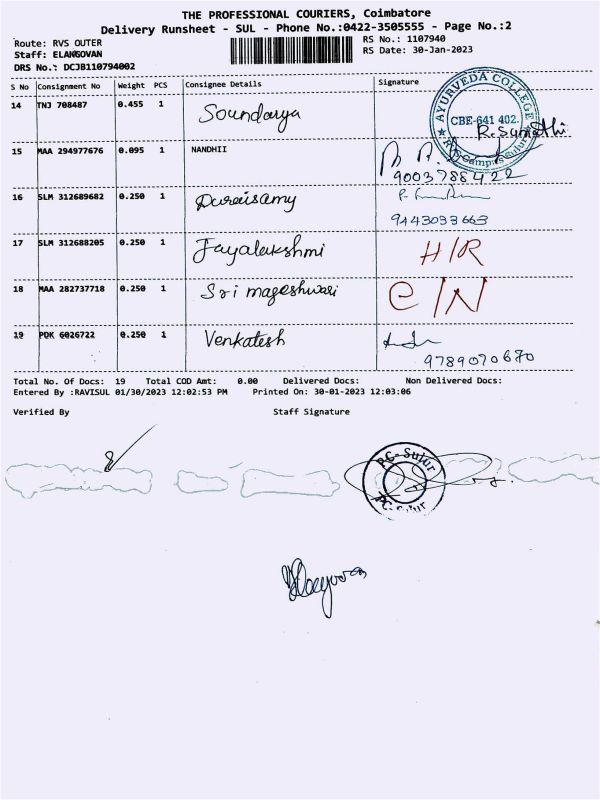 THE PROFESSIONAL COURIERS, Coimbatore
Delivery Runsheet - SUL - Phone No.:0422-3505555 - Page No.:2
Route: RVS OUTER
Staff: ELANGOVAN
DRS No.: DCJB110794002
RS No.: 1107940
RS Date: 30-Jan-2023
S No Consignment No Weight PCS Consignee Details Signature
14 TNJ 708487 0.455 1 Soundarya
AYURVEDA COLLEGE
CBE-641 402.
Campus Sulur
R. Sumathi
15 MAA 294977676 0.095 1 NANDHII
9003788422
16 SLM 312689682 0.250 1 Duraisamy
9443033663
17 SLM 312688205 0.250 1 Jayalakshmi H/R
18 MAA 282737718 0.250 1 Sri mageshwari C/N
19 PDK 6026722 0.250 1 Venkatesh
9789070670
Total No. Of Docs: 19 Total COD Amt: 0.00 Delivered Docs: Non Delivered Docs:
Entered By :RAVISUL 01/30/2023 12:02:53 PM Printed On: 30-01-2023 12:03:06
Verified By Staff Signature
PC- Sulur
PC- Sulur